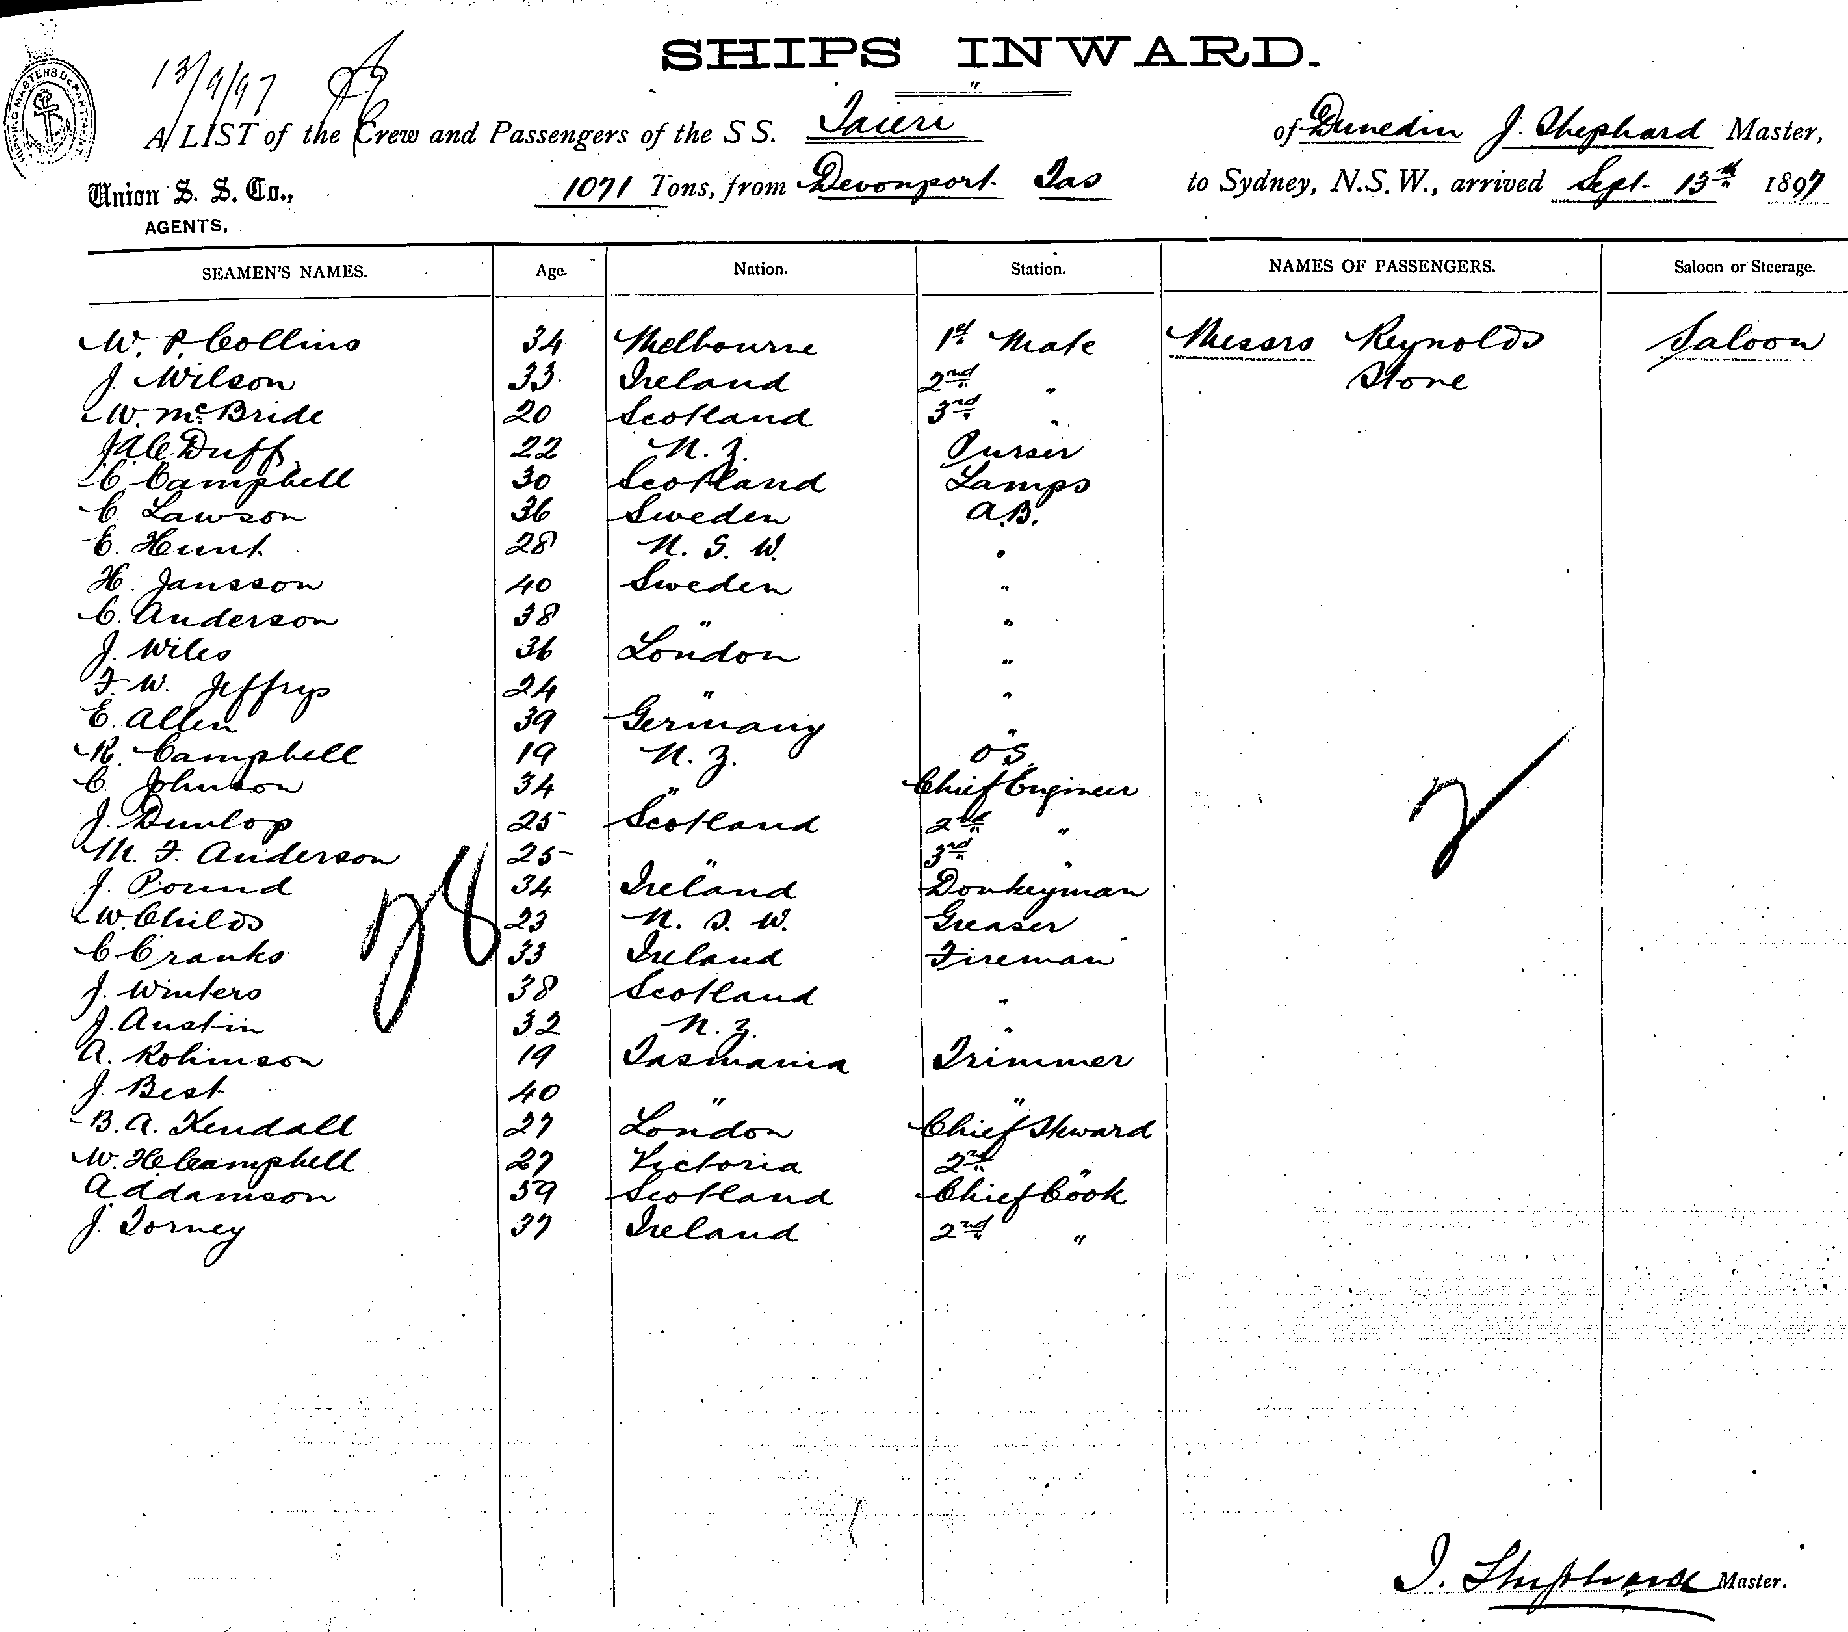 SHIPS INWARD.
13/9/97
A LIST of the Crew and Passengers of the S S. Taieri of Dunedin J. Shephard Master,
Union S. S. Co., 1071 Tons, from Devonport Tas to Sydney, N.S.W., arrived Sept. 13th 1897
AGENTS.
SEAMEN'S NAMES. Age. Nation. Station. NAMES OF PASSENGERS. Saloon or Steerage.
W. P. Collins 34 Melbourne 1st Mate Messrs Reynolds Saloon
J. Wilson 33 Ireland 2nd " Stone
W. McBride 20 Scotland 3rd "
Duff 22 N. Z. Purser
C. Campbell 30 Scotland Lamps
C. Lawson 36 Sweden A.B.
E. Hunt 28 N. S. W. "
H. Jansson 40 Sweden "
C. Anderson 38 " "
J. Wiles 36 London "
F. W. Jeffrys 24 " "
E. Allen 39 Germany "
R. Campbell 19 N. Z. O S.
C. Johnson 34 " Chief Engineer
J. Dunlop 25 Scotland 2nd "
M. F. Anderson 25 " 3rd "
J. Pound 34 Ireland Donkeyman
W. Childs 23 N. S. W. Greaser
C Cranks 33 Ireland Fireman
J. Winters 38 Scotland "
J. Austin 32 N. Z. "
A. Robinson 19 Tasmania Trimmer
J. Best 40 " "
B. A. Kendall 27 London Chief Steward
W. H. Campbell 27 Victoria 2nd "
A Adamson 59 Scotland Chief Cook
J. Torney 37 Ireland 2nd "
28
2
J. Shephard Master.